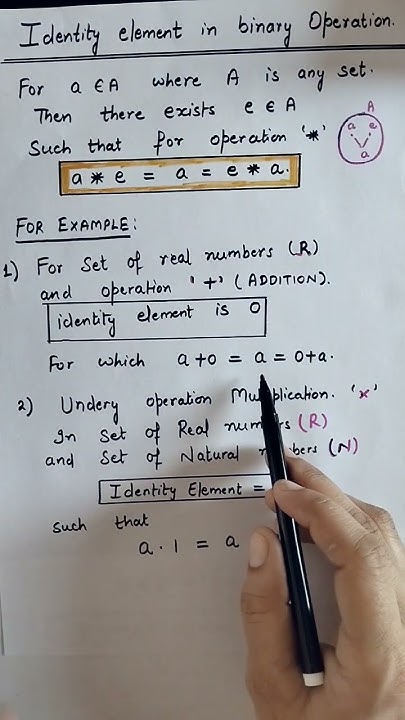 Identity element in binary Operation.
For a ∈ A where A is any set.
Then there exists e ∈ A
Such that for operation '*'
A
a e
a
a * e = a = e * a.
FOR EXAMPLE:
1) For Set of real numbers (R)
and operation '+' (ADDITION).
identity element is 0
For which a+0 = a = 0+a.
2) Undery operation Multiplication. 'x'
In Set of Real numbers (R)
and Set of Natural numbers (N)
Identity Element =
such that
a . 1 = a